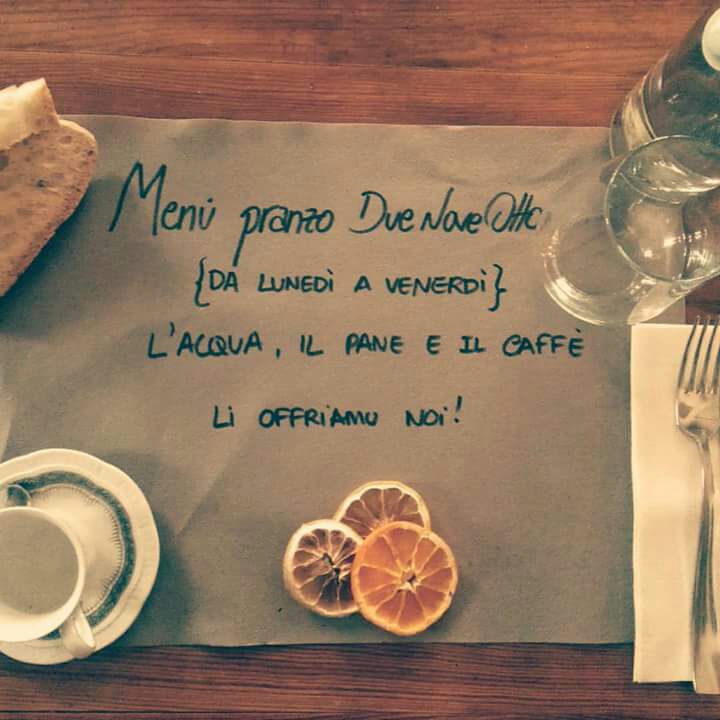 Menù pranzo DueNoveOtto
{DA LUNEDÌ A VENERDÌ}
L'ACQUA, IL PANE E IL CAFFÈ
LI OFFRIAMO NOI!